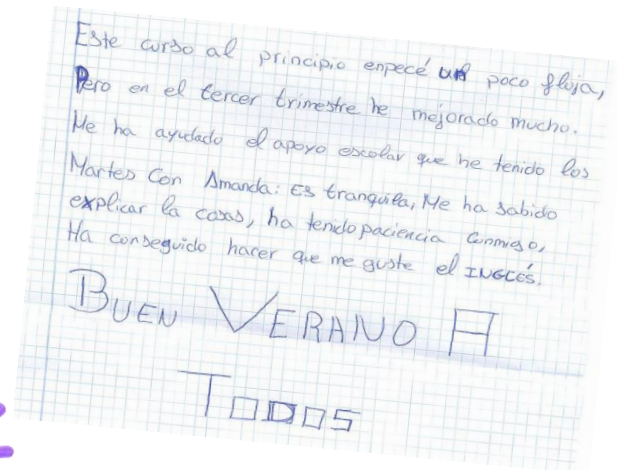 Este curso al principio enpecé un poco floja,
Pero en el tercer trimestre he mejorado mucho.
Me ha ayudado el apoyo escolar que he tenido los
Martes Con Amanda: Es tranquila, Me ha sabido
explicar la cosas, ha tenido paciencia conmigo,
Ha conseguido hacer que me guste el INGLÉS.
BUEN VERANO A
TODOS